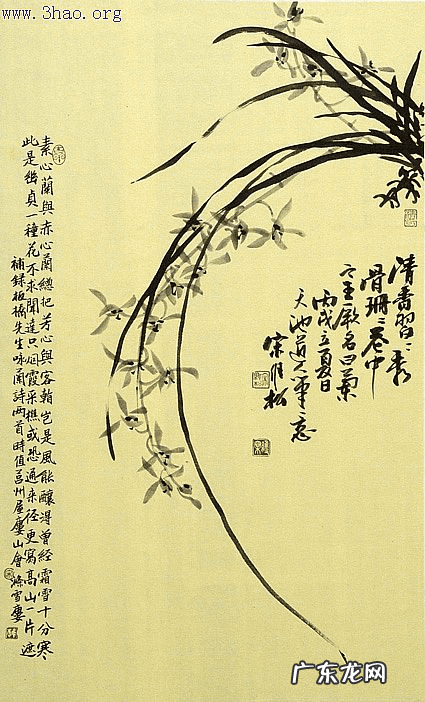 ://www.3hao.org
清香習〻秀
骨珊〻卷中
之王厥名曰蘭
丙戌立夏日
天池道人筆意
素心蘭與赤心蘭總把芳心與客豈是風能釀得曾經霜雪十分寒
此是幽貞一種花不求聞達只烟霞采樵或恐通來徑更寫高山一片遮
補録板橋先生咏蘭詩兩首時值莒州屋廔山會
广东龙网